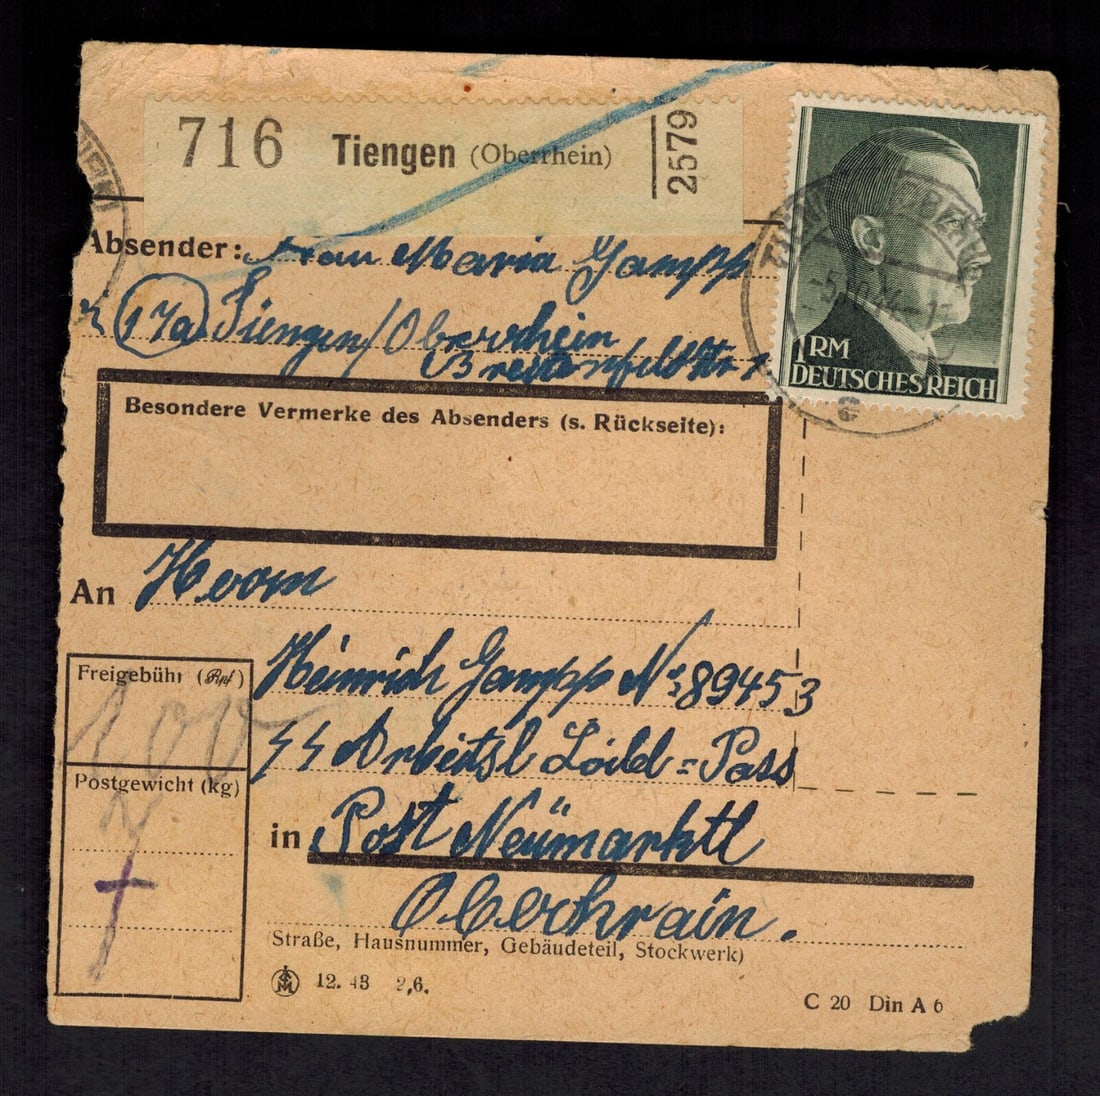 716 Tiengen (Oberrhein) 2579
Absender: Frau Maria Gampp
(17a) Tiengen/Oberrhein
1 RM
DEUTSCHES REICH
Besondere Vermerke des Absenders (s. Rückseite):
An Herrn
Heinrich Gampp No 89453
SS Arbeitsl Loibl=Pass
in Post Neümarktl
Oberkrain.
Freigebühr (Rpf)
100
Postgewicht (kg)
(Straße, Hausnummer, Gebäudeteil, Stockwerk)
12. 43 2,6.
C 20 Din A 6